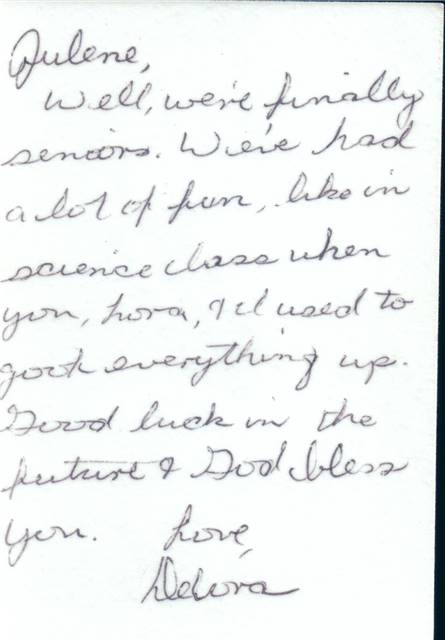 Julene,
Well, we're finally
seniors. We've had
a lot of fun, like in
science class when
you, Lora, & I used to
goof everything up.
Good luck in the
future & God bless
you. Love,
Debora